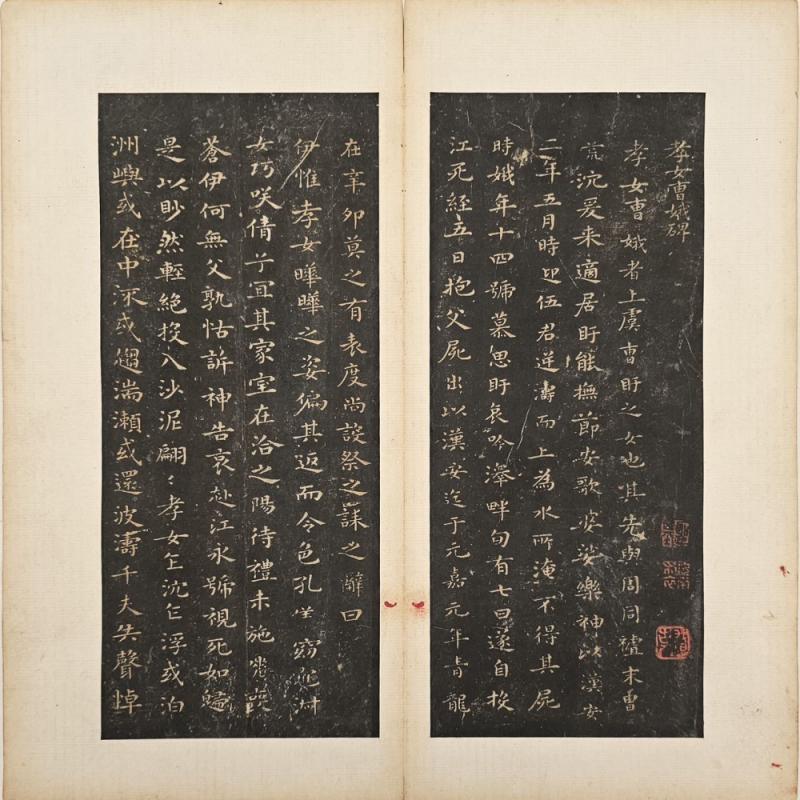 孝女曹娥碑
孝女曹娥者上虞曹盱之女也其先與周同祖末曹
荒沉爰来適居盱能撫節安歌婆娑樂神以漢安
二年五月時迎伍君逆濤而上為水所淹不得其屍
時娥年十四號慕思盱哀吟澤畔旬有七日遂自投
江死經五日抱父屍出以漢安迄于元嘉元年青龍
在辛卯莫之有表度尚設祭之誄之辭曰
伊惟孝女曄曄之姿偏其返而令色孔儀窈窕淑
女巧咲倩兮宜其家室在洽之陽待禮未施嗟喪
蒼伊何無父孰怙訴神告哀赴江永號視死如歸
是以眇然輕絕投入沙泥翩〻孝女乍沉乍浮或泊
洲嶼或在中流或趨湍瀬或還波濤千夫失聲悼